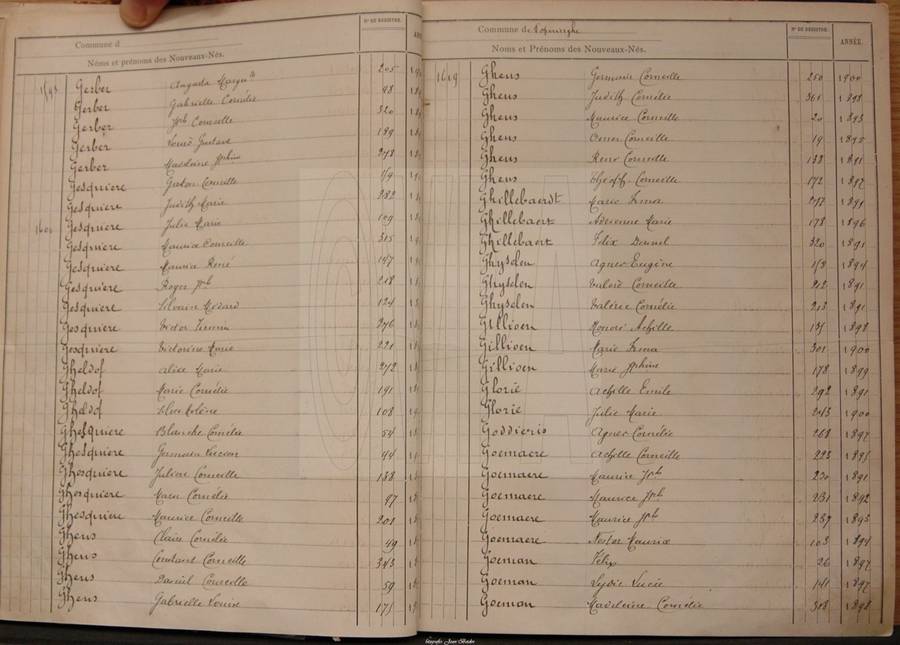 Commune d
Nº DE REGISTRE.
Noms et prénoms des Nouveaux-Nés.
Gerber Augusta Margute 205
Gerber Gabrielle Cornélie 98
Gerber Jph Corneille 320
Gerber Louis Gustave 189
Gerber Madeleine Jphine 278
Gesquiere Gaston Corneille 179
Gesquiere Judith Marie 282
Gesquiere Julia Marie 109
Gesquiere Maurice Corneille 315
Gesquiere Maurice René 147
Gesquiere Roger Jph 218
Gesquiere Silvain Médard 124
Gesquiere Victor Firmin 276
Gesquiere Victorine Marie 221
Gheldof Alice Marie 272
Gheldof Marie Cornélie 191
Gheldof 108
Ghesquiere Blanche Cornélie 54
Ghesquiere Germain Lucien 44
Ghesquiere Julien Corneille 138
Ghesquiere Cornélie 97
Ghesquiere Maurice Corneille 201
Gheus Claire Cornélie 49
Gheus Constant Corneille 343
Gheus Daniel Corneille 59
Gheus Gabrielle Louise 175
Commune de Poperinghe
Nº DE REGISTRE.
ANNÉE.
Noms et Prénoms des Nouveaux-Nés.
Gheus Germain Corneille 250 1900
Gheus Judith Cornélie 361 1898
Gheus Maurice Corneille 20 1893
Gheus Omer Corneille 19 1895
Gheus René Corneille 138 1891
Gheus Théoph. Corneille 172 1897
Ghillebaerdt Marie Irma 277 1891
Ghillebaert Adrienne Marie 178 1896
Ghillebaert Félix Daniel 320 1891
Ghyselen Agnes Eugène 1894
Ghyselen Valère Corneille 212 1891
Ghyselen Valérie Cornélie 213 1891
Gillioen Honoré Achille 135 1898
Gillioen Marie Irma 301 1900
Gillioen Marie Jphine 178 1899
Glorie Achille Emile 292 1891
Glorie Julie Marie 243 1900
Goddieris Agnes Cornélie 268 1897
Goemaere Achille Corneille 223 1895
Goemaere Maurice Jph 230 1891
Goemaere Maurice Jph 231 1892
Goemaere Maurice Jph 257 1893
Goemaere Nestor Maurice 103 1894
Goeman Félix 26 1897
Goeman Lydie Lucie 141 1897
Goeman Madeleine Cornélie 318 1898